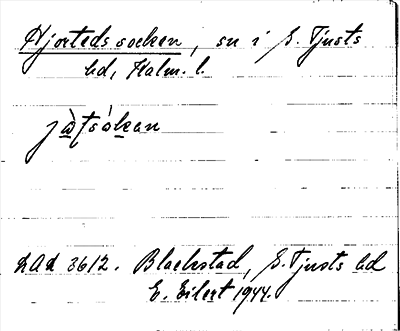 Hjorteds socken, sn i S. Tjusts
hd, Kalm. l.
LAD 3612. Blackstad, S. Tjusts hd
E. Eilert 1944.